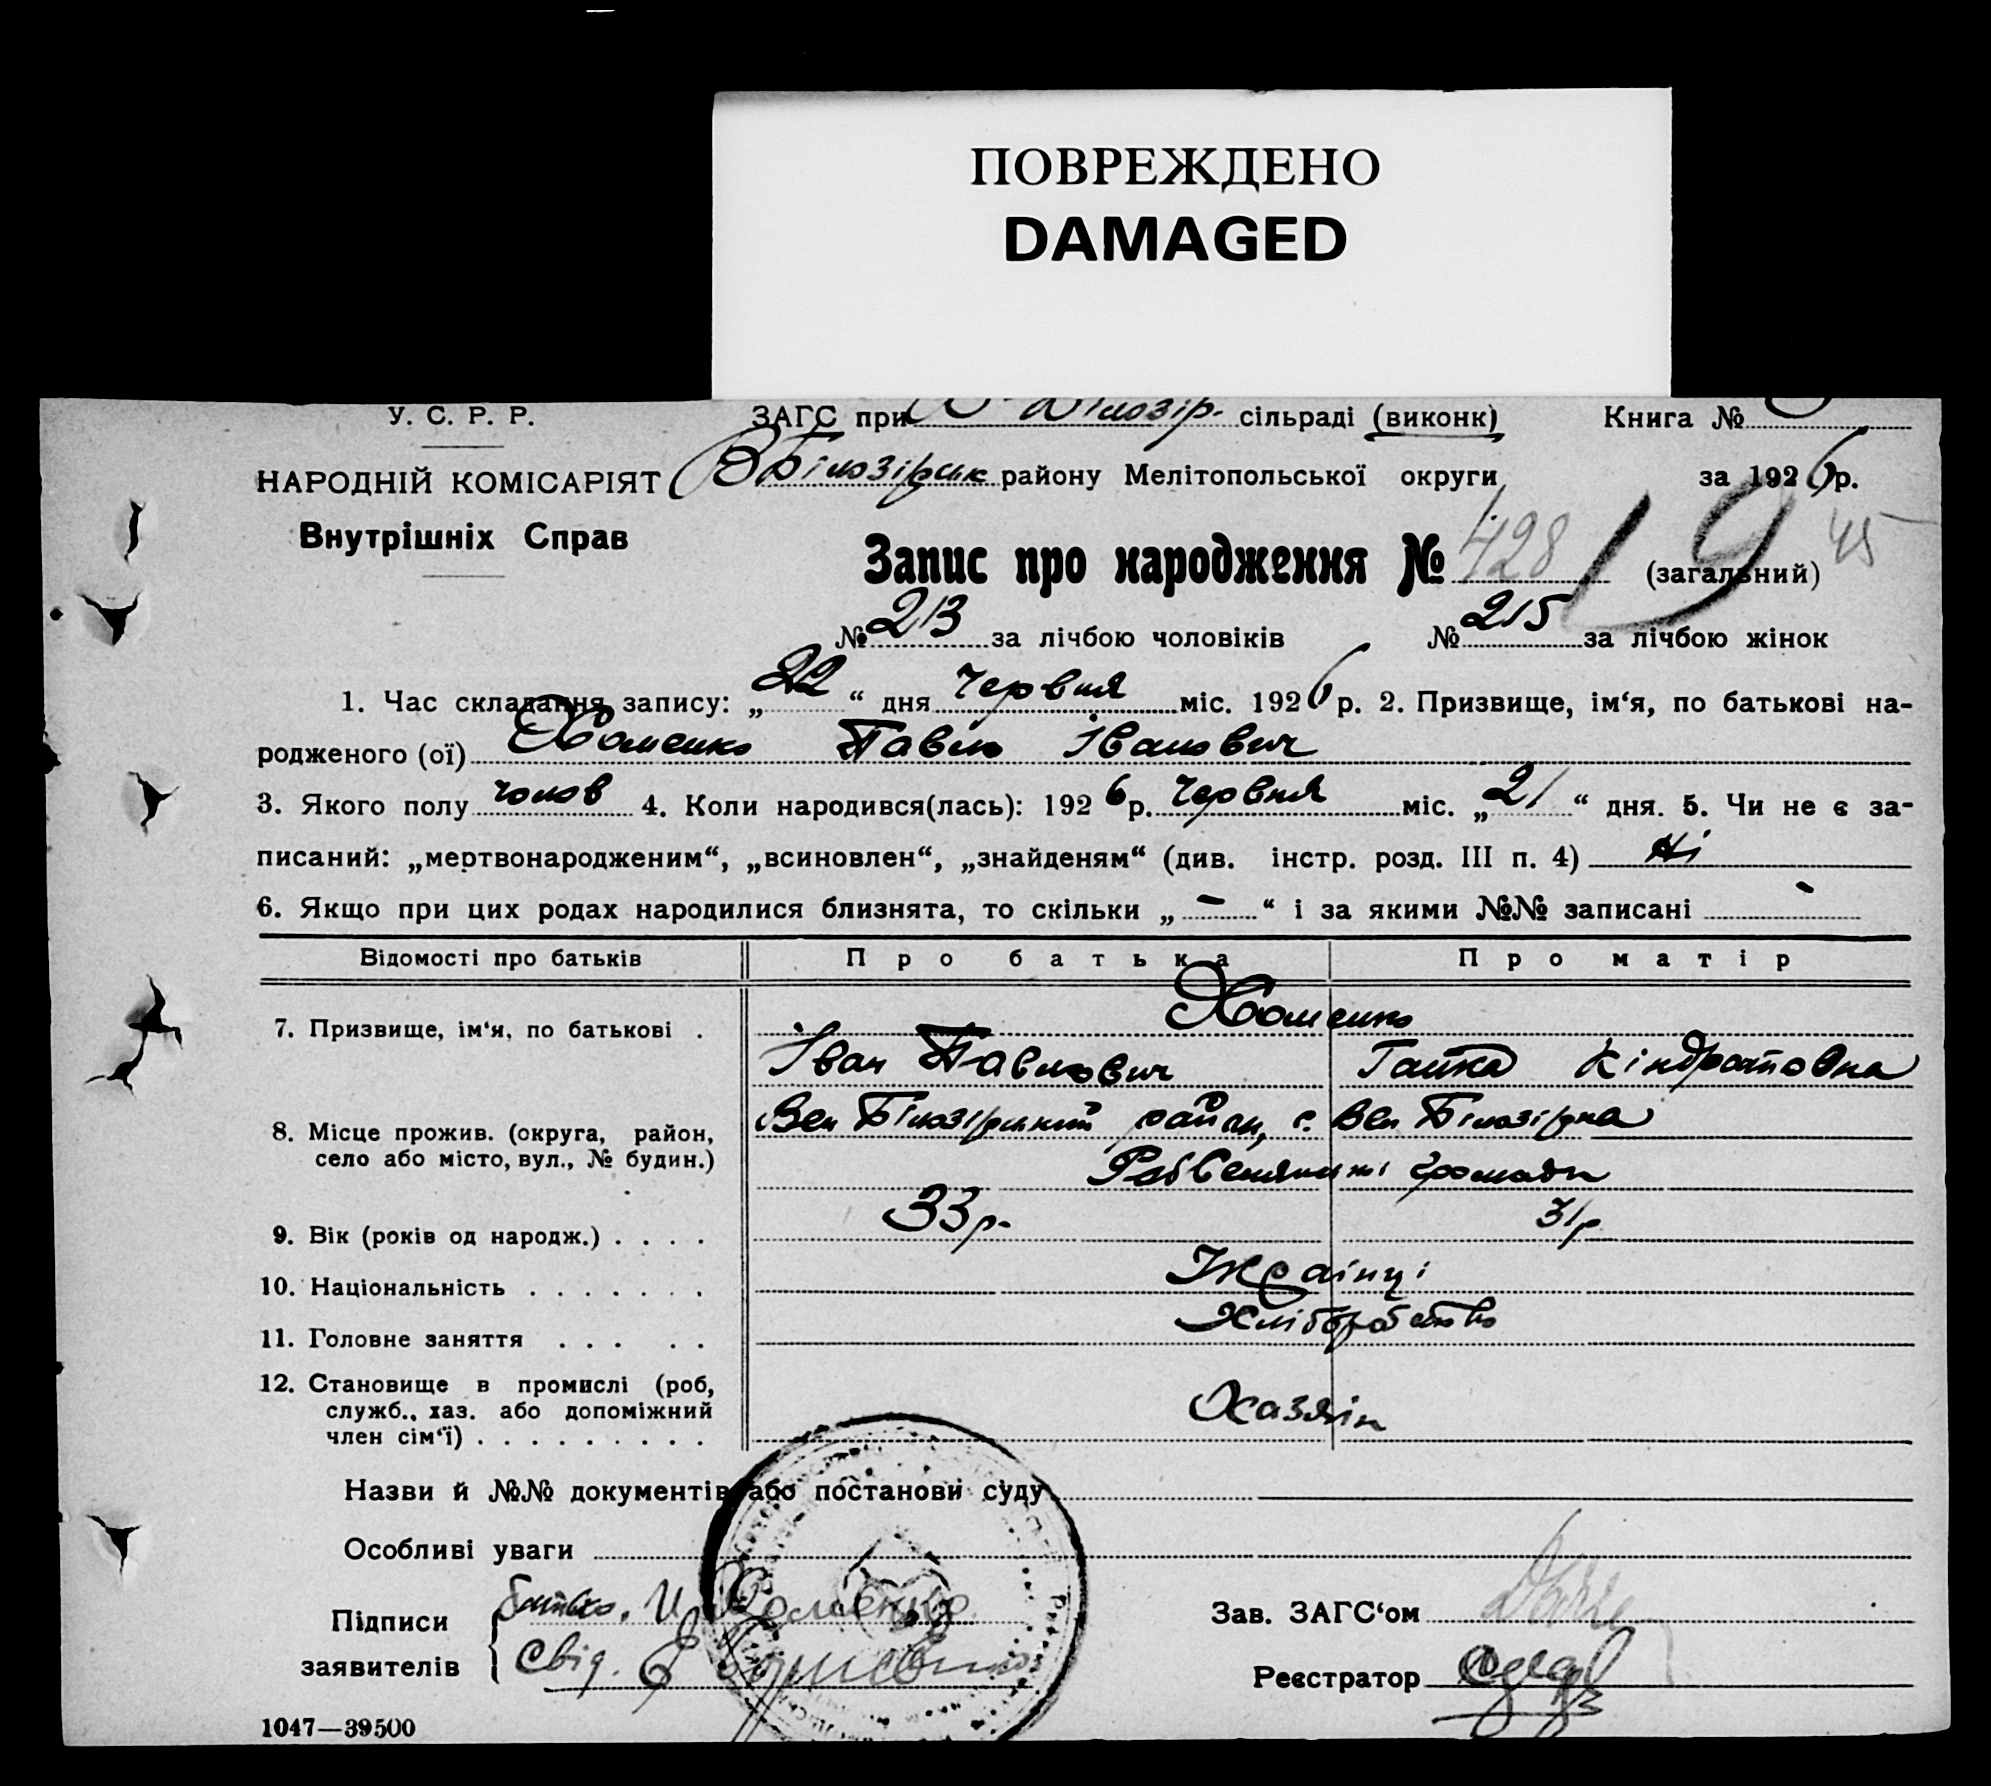 ПОВРЕЖДЕНО
DAMAGED
У. С. Р. Р. ЗАГС при Білозір. сільраді (виконк) Книга №
НАРОДНІЙ КОМІСАРІЯТ В Білозірськ району Мелітопольської округи за 1926 р.
Внутрішніх Справ
Запис про народження № 428 19 (загальний) 45
№ 213 за лічбою чоловіків № 215 за лічбою жінок
1. Час складання запису: „22“ дня Червня міс. 1926 р. 2. Призвище, ім‘я, по батькові на-
родженого (ої) Хоменко Павло Іванович
3. Якого полу чолов 4. Коли народився(лась): 1926 р. Червня міс. „21“ дня. 5. Чи не є за-
писаний: „мертвонародженим“, „всиновлен“, „знайденям“ (див. інстр. розд. III п. 4) Ні
6. Якщо при цих родах народилися близнята, то скільки „ – “ і за якими №№ записані -
Відомості про батьків Про батька Про матір
7. Призвище, ім‘я, по батькові . Хоменко
Іван Павлович Гапка Кіндратовна
8. Місце прожив. (округа, район, Вел Білозірський район, с. Вел Білозірка
село або місто, вул., № будин.) громади
9. Вік (років од народж.) . . . . 33 р. 31 р
10. Національність . . . . . . . Українці
11. Головне заняття . . . . . Хліборобство
12. Становище в промислі (роб,
служб., хаз. або допоміжний Хазяїн
член сім‘ї) . . . . . . . . .
Назви й №№ документів або постанови суду
Особливі уваги
Підписи батько. И Хоменко Зав. ЗАГС‘ом
заявителів Свід. Реєстратор
1047—39500